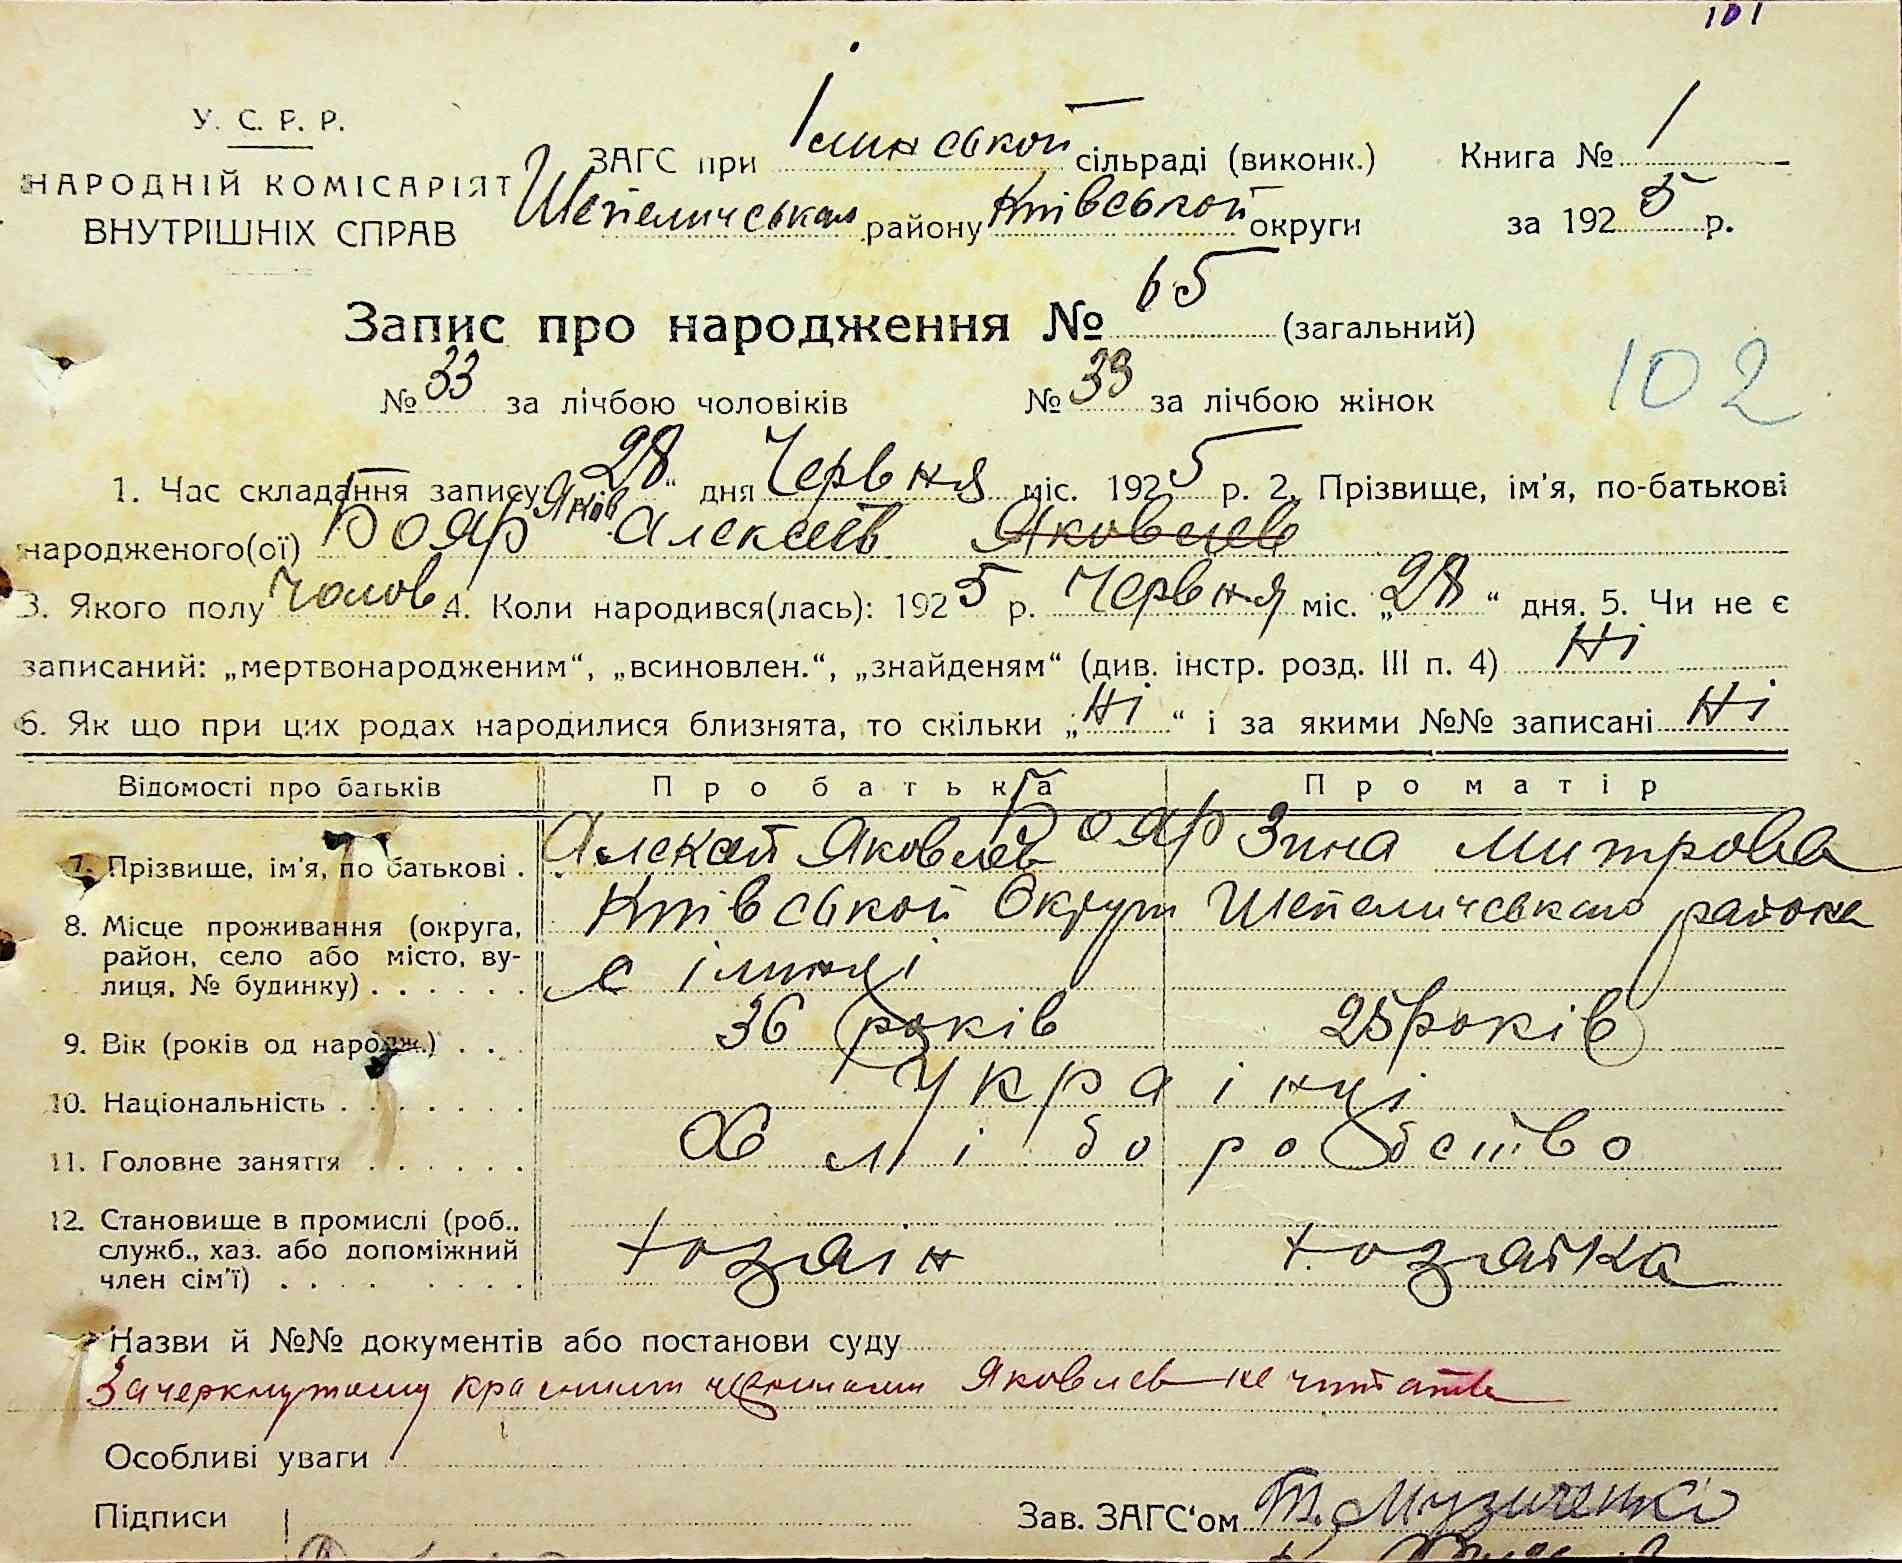 101
У. С. Р. Р.
НАРОДНІЙ КОМІСАРІЯТ
ВНУТРІШНІХ СПРАВ
ЗАГС при Ілинськой сільраді (виконк.)
Шепеличськаго району Київськой округи
Книга № 1
за 1925 р.
Запис про народження № 65 (загальний)
№ 33 за лічбою чоловіків № 33 за лічбою жінок
102
1. Час складання запису: 28 “ дня Червня міс. 1925 р. 2. Прізвище, ім'я, по-батькові
народженого(ої) Бояр Яков Алексеев Яковлев
3. Якого полу Чолов 4. Коли народився(лась): 1925 р. Червня міс. „28“ дня. 5. Чи не є
записаний: „мертвонародженим“, „всиновлен.“, „знайденям“ (див. інстр. розд. III п. 4) Ні
6. Як що при цих родах народилися близнята, то скільки „Ні“ і за якими №№ записані Ні
Відомості про батьків Про батька Про матір
7. Прізвище, ім'я, по батькові . Алексай Яковлев Бояр Зина Митрова
8. Місце проживання (округа, район, село або місто, вулиця, № будинку) . . . . . . Київськой Округи Шепеличськаго района
с ілинці
9. Вік (років од народж.) . . . 36 років 25 років
10. Національність . . . . . . . Украінці
11. Головне заняття . . . . . . Хліборобство
12. Становище в промислі (роб., служб., хаз. або допоміжний член сім'ї) . . . . . . . . хозаін хозайка
Назви й №№ документів або постанови суду
Зачеркнутому красними чернилами Яковлев не читать
Особливі уваги
Підписи Зав. ЗАГС'ом Т. Музиченко